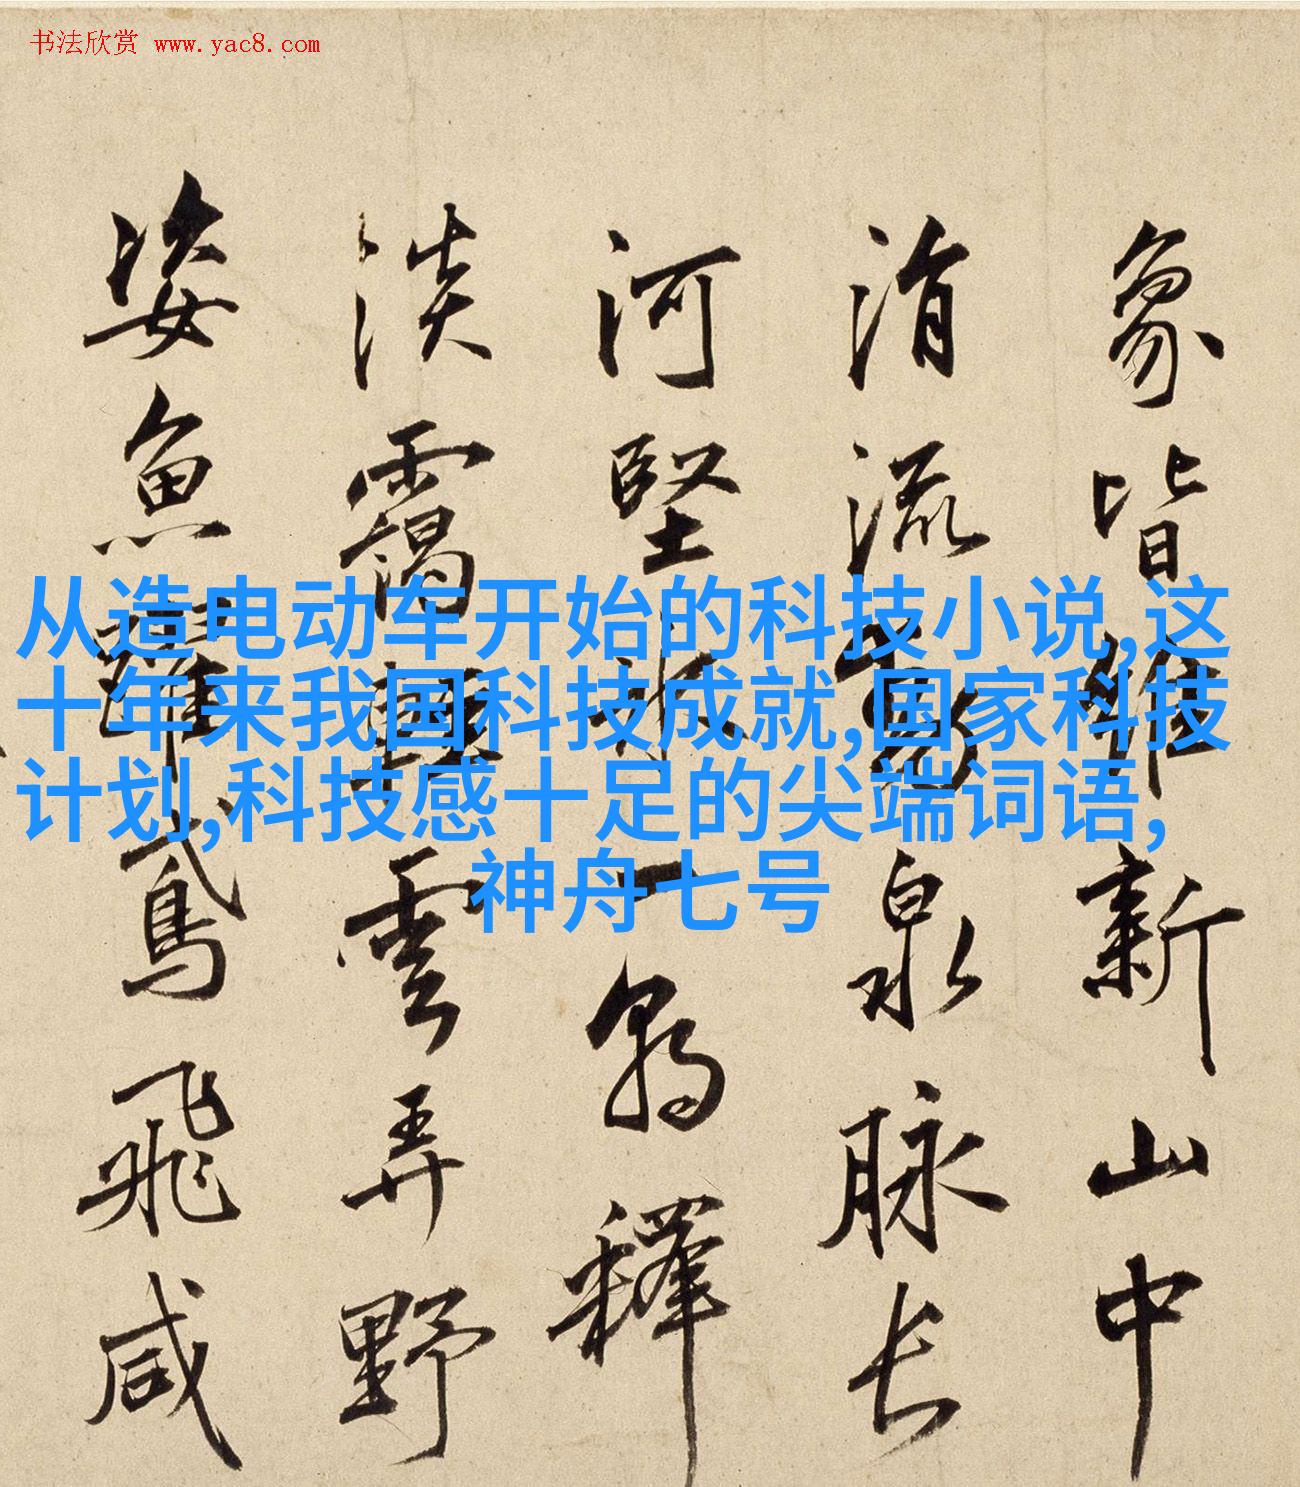 书法欣赏 www.yac8.com
从造电动车开始的科技小说,这
十年来我国科技成就,国家科技
计划,科技感十足的尖端词语,
神舟七号
象皆維新山中
消流高泉脉长
河堅冰一朝釋
淡靄輕雲弄野
姿魚躍鳶飛咸